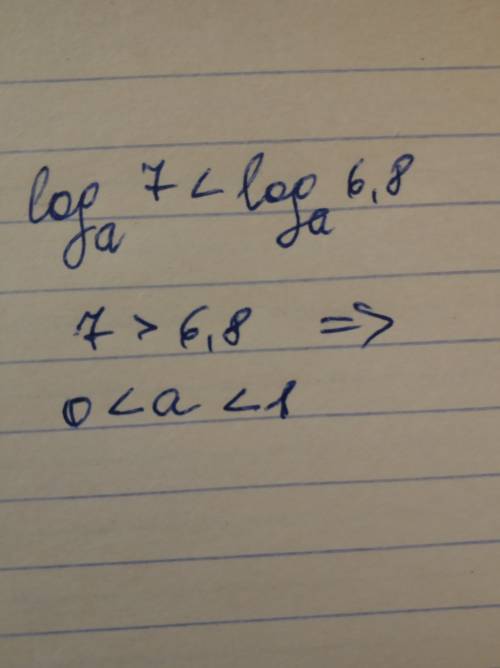 logₐ 7 < logₐ 6,8
7 > 6,8 ⇒
0 < a < 1